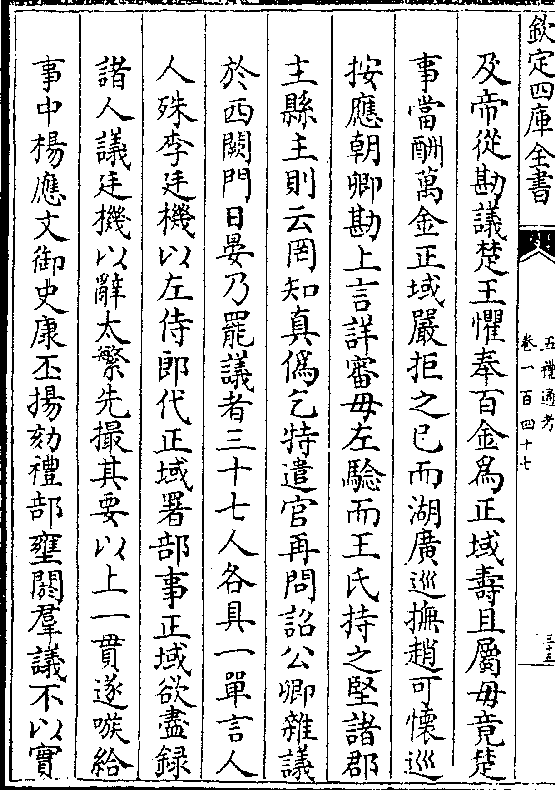 欽定四庫全書
五禮通考
卷一百四十七
三十五
及帝從勘議楚王懼奉百金為正域壽且屬毋竟楚
事當酬萬金正域嚴拒之已而湖廣巡撫趙可懷巡
按應朝卿勘上言詳審毋左驗而王氏持之堅諸郡
主縣主則云罔知真偽乞特遣官再問詔公卿雜議
於西闕門日晏乃罷議者三十七人各具一單言人
人殊李廷機以左侍郎代正域署部事正域欲盡録
諸人議廷機以辭太繁先撮其要以上一貫遂嗾給
事中楊應文御史康丕揚劾禮部壅閼羣議不以實